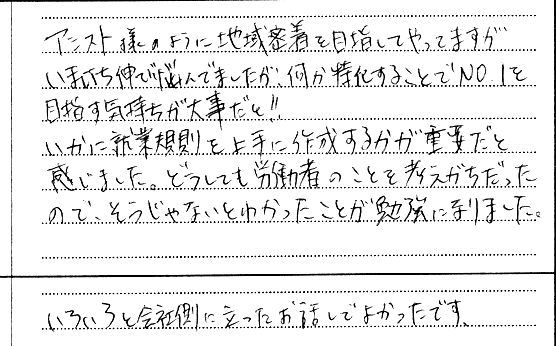 アシスト様のように地域密着を目指してやってますが
いまいち伸び悩んでましたが、何か特化することでNO.1を
目指す気持ちが大事だと!!
いかに就業規則を上手に作成するかが重要だと
感じました。どうしても労働者のことを考えがちだった
ので、そうじゃないとわかったことが勉強になりました。
いろいろと会社側に立ったお話しでよかったです。